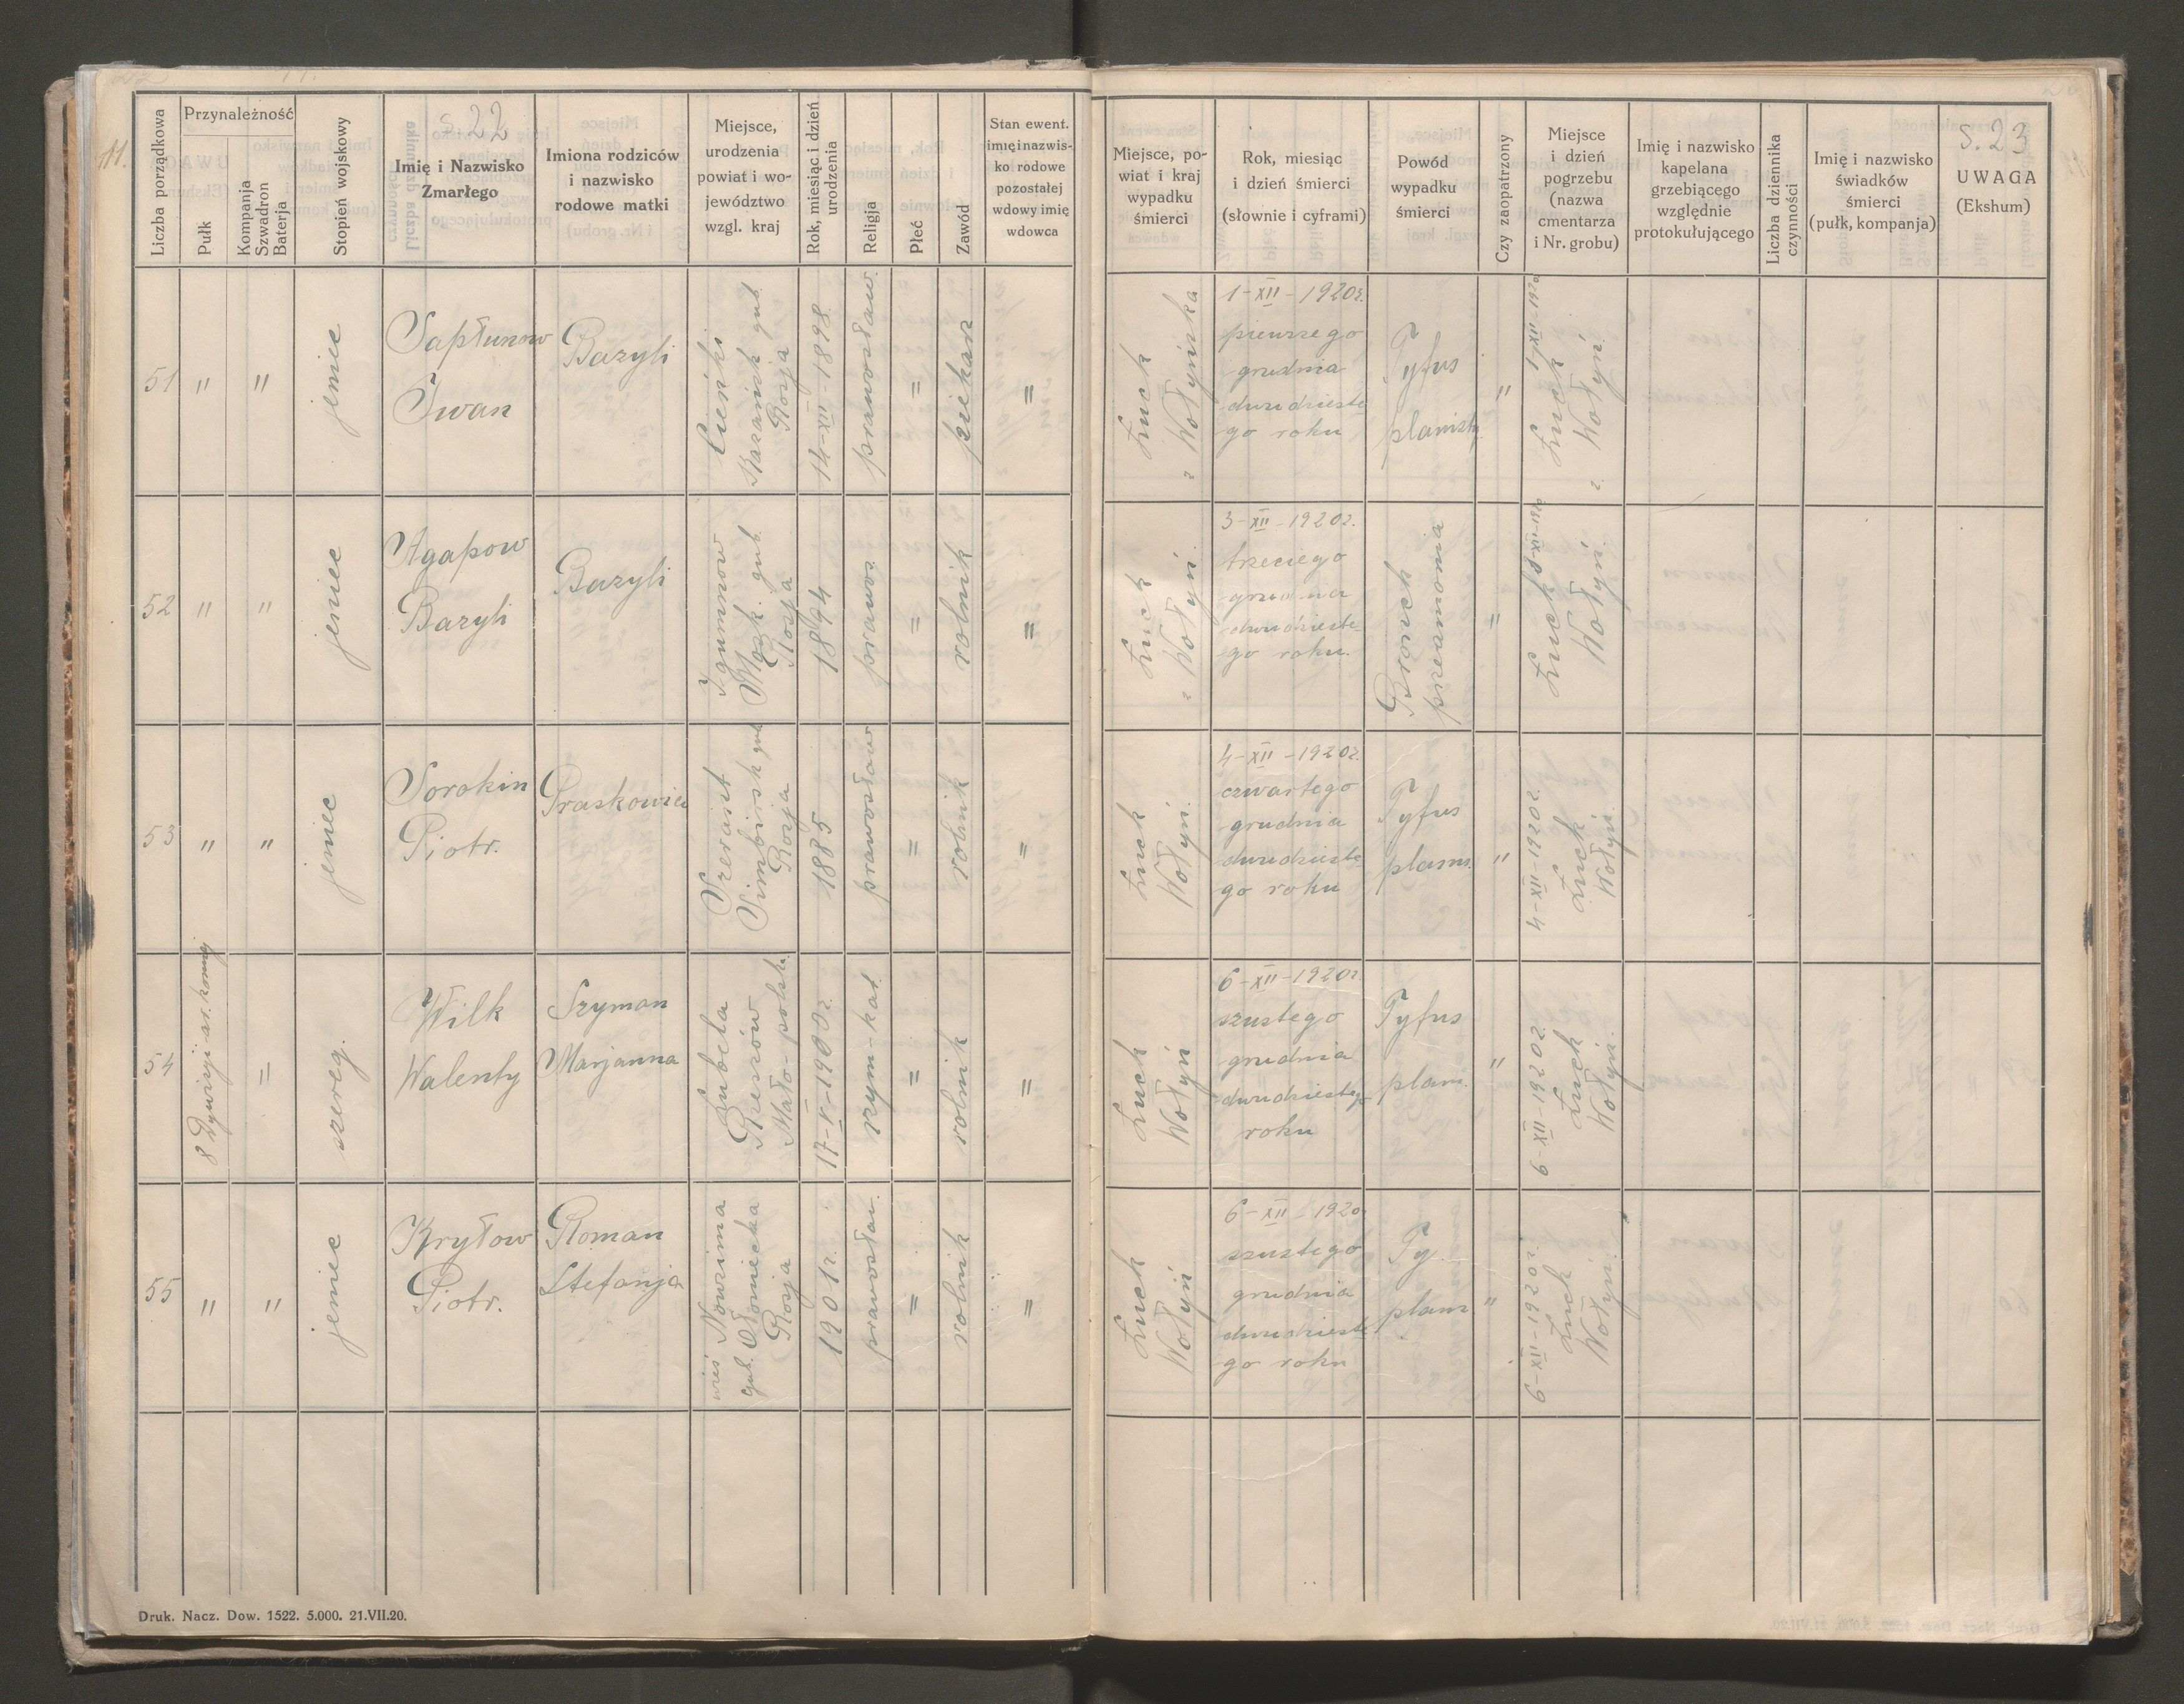 11.
s 22
Liczba porządkowa
Przynależność
Pułk
Kompanja
Szwadron
Baterja
Stopień wojskowy
Imię i Nazwisko
Zmarłego
Imiona rodziców
i nazwisko
rodowe matki
Miejsce,
urodzenia
powiat i wo-
jewództwo
wzgl. kraj
Rok, miesiąc i dzień
urodzenia
Religja
Płeć
Zawód
Stan ewent.
imię i nazwis-
ko rodowe
pozostałej
wdowy imię
wdowca
Miejsce, po-
wiat i kraj
wypadku
śmierci
Rok, miesiąc
i dzień śmierci
(słownie i cyframi)
Powód
wypadku
śmierci
Czy zaopatrzony
Miejsce
i dzień
pogrzebu
(nazwa
cmentarza
i Nr. grobu)
Imię i nazwisko
kapelana
grzebiącego
względnie
protokułującego
Liczba dziennika
czynności
Imię i nazwisko
świadków
śmierci
(pułk, kompanja)
s. 23
UWAGA
(Ekshum)
51
"
"
jeniec
Sapłunow
Iwan
Bazyli
Kazańsk gub.
Rosja
14-XII-1898
prawosław.
=
piekarz
=
Łuck
z Wołyńska
1-XII-1920r.
pierwszego
grudnia
dwudzieste
go roku
Tyfus
plamisty
"
1/XII-1920
Łuck
z Wołyń.
52
"
"
jeniec
Agapow
Bazyli
Bazyli
Igumnow
Mosk. gub.
Rosja
1894
prawos.
=
rolnik
=
Łuck
z Wołyń.
3-XII-1920r.
trzeciego
grudnia
dwudzieste
go roku.
Bronch
pneamonia
"
Łuck
Wołyń.
53
"
"
jeniec
Sorokin
Piotr.
Praskowia
Simbirsk gub
Rosja
1885
prawosław
=
rolnik
=
Łuck
Wołyń.
4-XII-1920r.
czwartego
grudnia
dwudzieste
go roku
Tyfus
plams.
"
4-XII-1920r.
Łuck
Wołyń.
54
8 Dywizji ar. konnej
=
szereg.
Wilk
Walenty
Szymon
Marjanna
Lubcla
Rzeszów
Mało-polska
17-V-1900r.
rzym-kat.
=
rolnik
=
Łuck
Wołyń
6-XII-1920r
szustego
grudnia
dwudziestego
roku
Tyfus
plam.
"
6-XII-1920r.
Łuck
Wołyń.
55
"
"
jeniec
Kryłow
Piotr.
Roman
Stefanja
wieś Nowzima
gub. Ołoniecka
Rosja
1901r.
prawosław.
=
rolnik
=
Łuck
Wołyń
6-XII-1920
szustego
grudnia
dwudzieste
go roku
Ty
plam.
"
6-XII-1920r.
Łuck
Wołyń.
Druk. Nacz. Dow. 1522. 5.000. 21.VII.20.